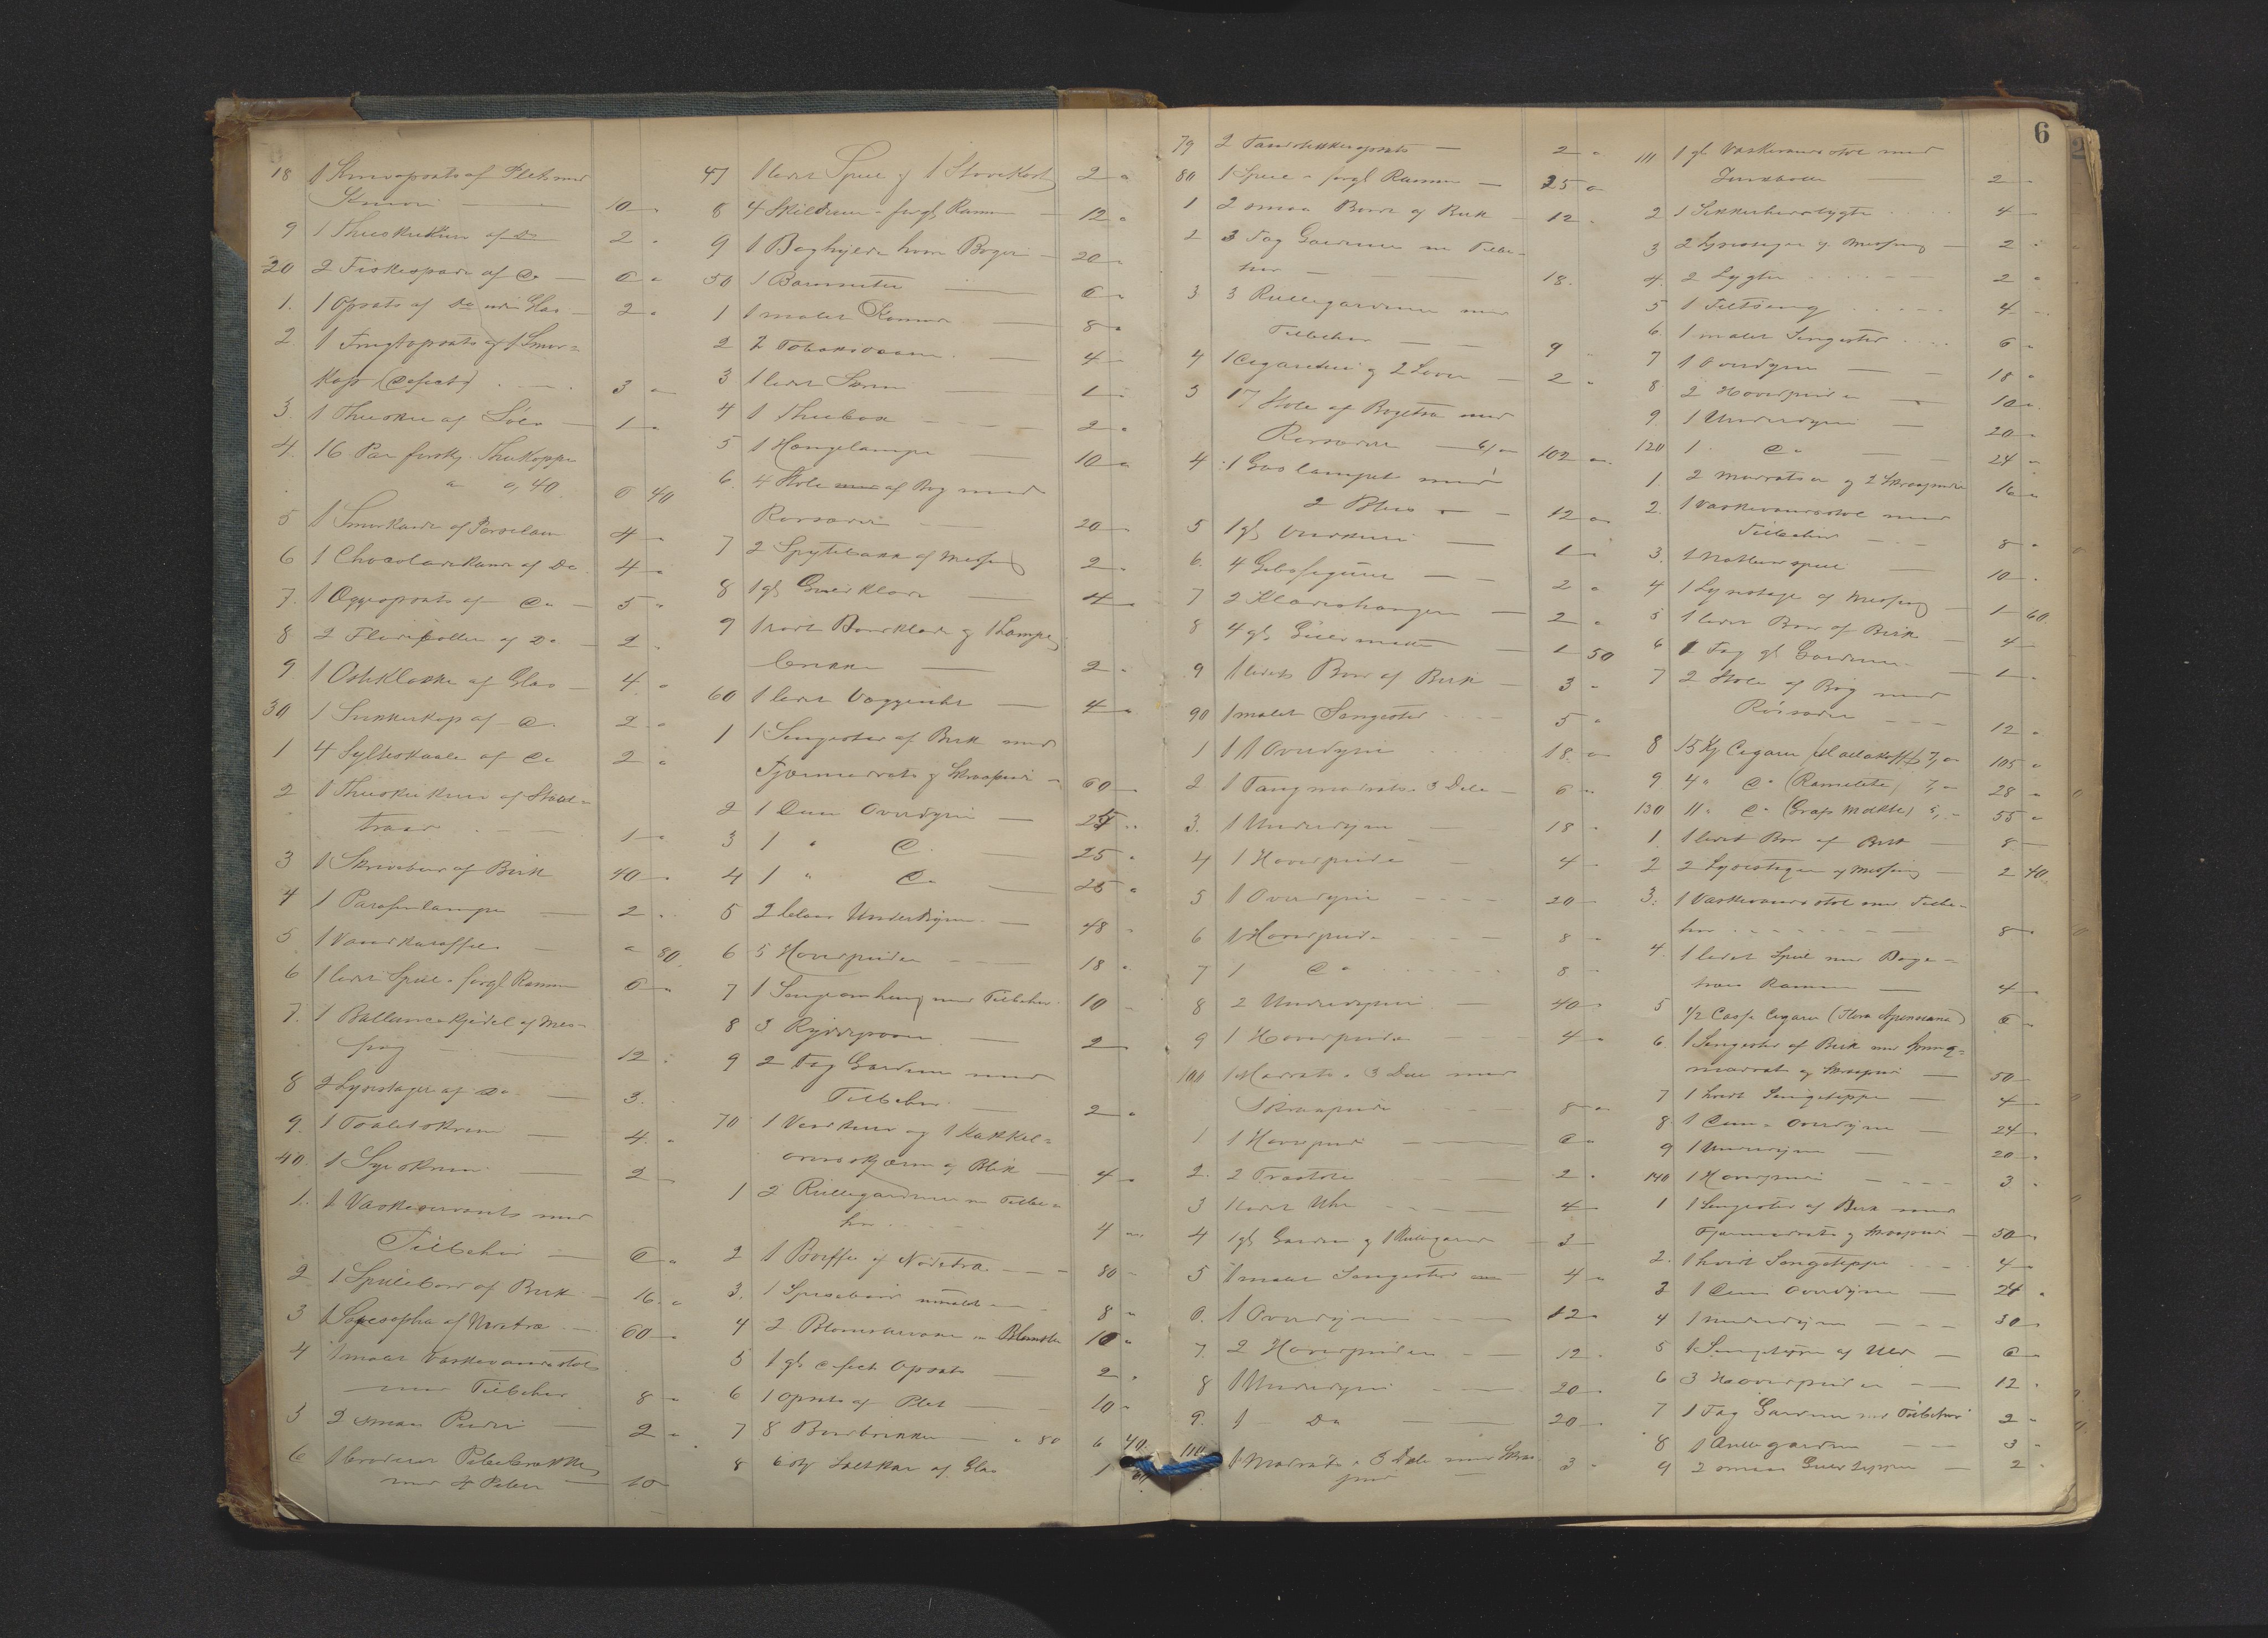 18 1 Knivopsats af Plet med
Knivi 10 "
9 1 Theeskekurv af Do 2 "
20 2 Fiskespader af Do 6 "
1. 1 Opsats af Do uden Glas 2 "
2. 1 Frugtopsats og 1 Smør=
kop (defect) 3 "
3. 1 Theeske af Sølv 1 "
4. 16 Par forskj. Thekopper
a 0,40 6 40
5 1 Smørkande af Porcelain 4 "
6 1 Chocoladekande af Do 4 "
7. 1 Æggeopsats af Do 5 "
8 2 Fløde af Do 2 "
9. 1 Osteklokke af Glas 4 "
30 1 Sukkerkop af Do 2 "
1 4 Sylteskaale af Do 2 "
2 1 Theeskekurv af Staal=
traad 1 "
3 1 Skrivebord af Birk 40 "
4 1 Parafinlampe 2 "
5 1 Vandkaraffel " 80
6 1 lidet Speil i forgl Ramme 6 "
7. 1 Ballancekjedel af Mes=
sing 12 "
8 2 Lysestager af Do 3 "
9. 1 Toiletskrin 4 "
40. 1 Syskrin 2 "
1. 1 Vaskeservants med
Tilbehør 6 "
2 1 Spillebord af Birk 16 "
3 1 Sovesopha af Nøtetræ 60 "
4 1 malet Vaskevandsstol
med Tilbehør 8 "
5 2 smaa Puder 2 "
6 1 broderet Pibebrække
med 4 Piber 10
47 1 lidet Speil og 1 Storekort 2 "
8 4 Skilderier i forgl Ramme 12 "
9 1 Boghylde hvori Bøger 20 "
50 1 Barometer 6 "
1 1 malet Kommode 8 "
2 2 Tobaksdaaser 4 "
3 1 lidet Skrin 1 "
4 1 Theebox 2 "
5 1 Hængelampe 10 "
6. 4 Stole af Bøg med
Rørsæder 20 "
7 2 Spyttebakker af Messing 2 "
8 1 gl Gulvklæde 4 "
9 1 rødt Bordklæde og 1 Lampe
brikke 2 "
60 1 lidet Væggeuhr 4 "
1 1 Sengested af Birk med
Fjærmadrats og Skraapude 60 "
2 1 Duun Overdyne 25 "
3 1 " Do 25 "
4 1 " Do 25 "
5 2 blaae Underdyner 48 "
6 5 Hovedpuder 18 "
7 1 Sengeomheng med Tilbehør 10 "
8 3 2
9 2 Fag Gardiner med
Tilbehør 2 "
70 1 Vedkurv og 1 Kakkel=
ovnsskjærm af Blik 4 "
1 2 Rullegardiner m Tilbe=
hør 4 "
2 1 Buffet af Nødetræ 80 "
3. 1 Spisebord umalet 8 "
4 2 Blomstervaser m Blomster 10 "
5 1 gl defect Opsats 2 "
6 1 Opsats af Plet 10 "
7 8 Bordbrikker " 80 6 40
8 6 stk Saltkar af Glas 1
79 2 Tandstikkeropsats 2 "
80 1 Speil i forgl Ramme 25 "
1 2 smaa Borde af Birk 12 "
2 3 Fag Gardiner m Tilbe=
hør 18 "
3 3 Rullegardiner med
Tilbehør 9 "
4 1 Cigaretui og 2 2 "
5 17 Stole af Bøgetræ med
Rørsæder 6/" 102 "
4 1 Gaslampet med
2 Blus 12 "
5 1 gl 1 "
6. 4 Gibsfigurer 2 "
7 2 Klædeshænger 2 "
8 4 gl Gulvmatter 1 50
9 1 lidets Bord af Birk 3 "
90 1 malet Sengested 5 "
1 1 Overdyne 18 "
2 1 Tangmadrats i 3 Dele 6 "
3. 1 Underdyne 18 "
4 1 Hovedpude 4 "
5 1 Overdyne 20 "
6 1 Hovedpude 8 "
7 1 Do 8 "
8 2 Underdyner 40 "
9 1 Hovedpude 4 "
100 1 Madrats i 3 Dele med
Skraapude 8 "
1 1 Hovedpude 6 "
2. 2 Træstole 2 "
3 1 lidet Uhr 4 "
4 1 gl Gardin og 1 Rullegardin 3
5 1 malet Sengested 4 "
6. 1 Overdyne 12 "
7. 2 Hovedpuder 12 "
8 1 Underdyne 20 "
9. 1 Do 20 "
110 1 Madrats i 3 Dele med Skraa
pude 3 "
6
111 1 gl Vaskevandsstol med
Jernbolle 2 "
2 1 Sikkerhedslygte 4 "
3 2 Lysestager af Messing 2 "
4. 2 Lygter 2 "
5 1 Feltseng 4 "
6. 1 malet Sengested 6 "
7 1 Overdyne 18 "
8. 2 Hovedpuder 10 "
9 1 Underdyne 20 "
120 1 Do 24 "
1 2 Madratser og 2 Skraapuder 16 "
2. 1 Vaskevandsstol med
Tilbehør 8 "
3. 1 10 "
4 1 Lysestage af Messing 1 60
5 1 lidet Bord af Birk 4
6 1 Fag gl Gardiner 1 "
7 2 Stole af Bøg med
Rørsæder 12 "
8 15 Ks Cigarer 7/" 105 "
9 4 " Do (Ramilete) 7/" 28 "
130 11 " Do (Graf Moltke) 5/" 55 "
1. 1 lidet Bord af Birk 8 "
2 2 Lysestager af Messing 2 40
3. 1 Vaskevandsstol med Tilbe=
hør 8 "
4. 1 lidet Speil med Bøge=
træes Ramme 4 "
5 1/2 Casse Cigarer (Flora) 6 "
6 1 Sengested af Birk med Spring=
madrats og Skraapude 50 "
7 1 hvidt Sengeteppe 4 "
8. 1 Duun Overdyne 24 "
9 1 Underdyne 20 "
140 1 Hovedpude 3 "
1 1 Sengested af Birk med
Fjærmadrats og Skraapude 50 "
2. 1 hvidt Sengeteppe 4 "
3 1 Duun Overdyne 24 "
4 1 Underdyne 30 "
5 1 af Uld 6 "
6 3 Hovedpuder 12 "
7 1 Fag Gardiner med Tilbehør 2 "
8 1 Rullegardin 3 "
9 2 smaa Gulvtepper 2 "